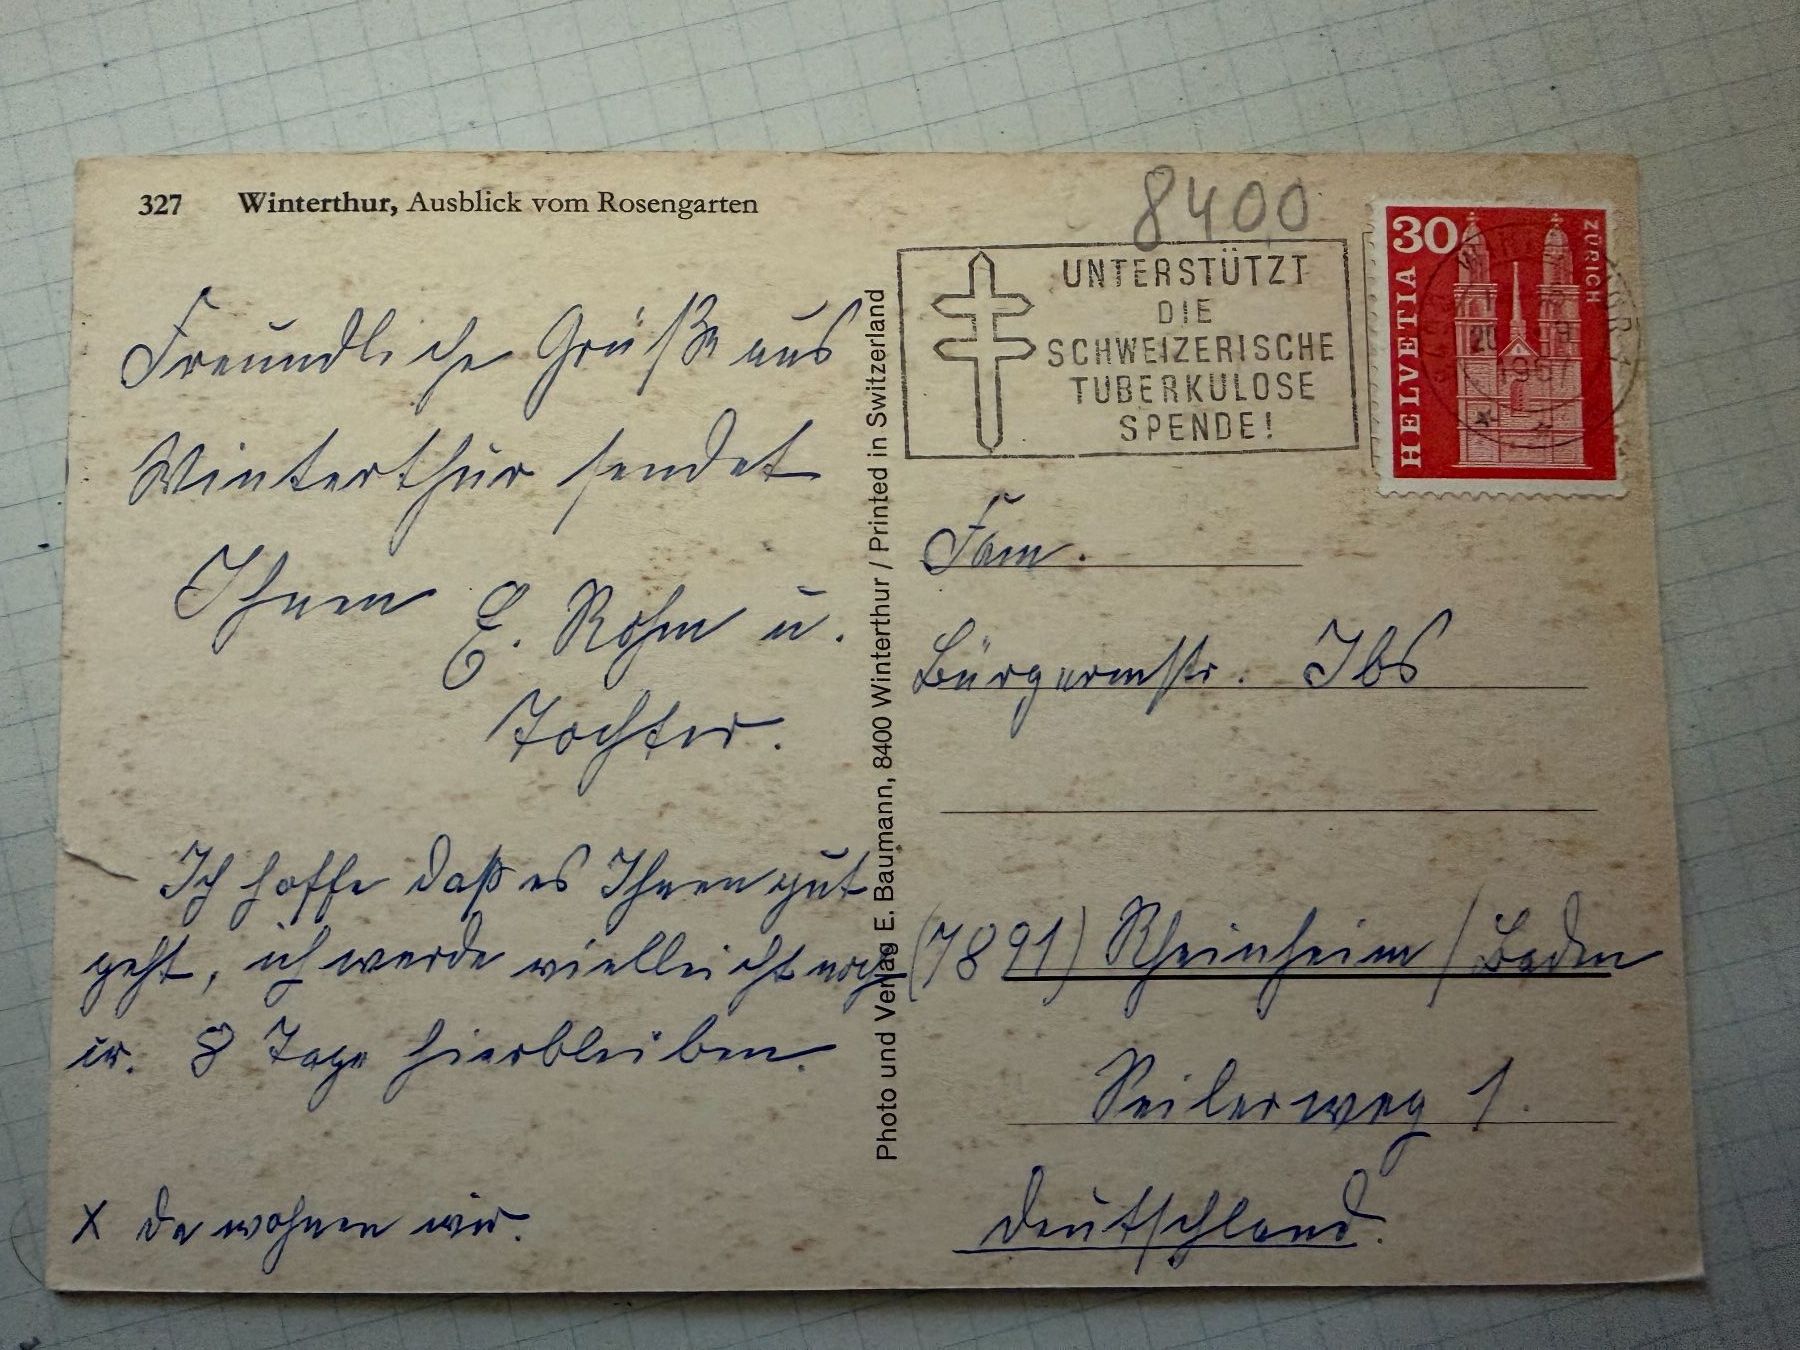 327 Winterthur, Ausblick vom Rosengarten
Freundliche Grüße aus
Winterthur sendet
Ihnen E. Rohm u.
Tochter.
Ich hoffe daß es Ihnen gut
geht, ich werde vielleicht noch
8 Tage hierbleiben.
X da wohnen wir.
Photo und Verlag E. Baumann, 8400 Winterthur / Printed in Switzerland
8400
UNTERSTÜTZT
DIE
SCHWEIZERISCHE
TUBERKULOSE
SPENDE!
30
HELVETIA
ZÜRICH
Fam.
Bürgermstr. Ibs
(7891) Rheinheim / Baden
Seilerweg 1.
Deutschland.